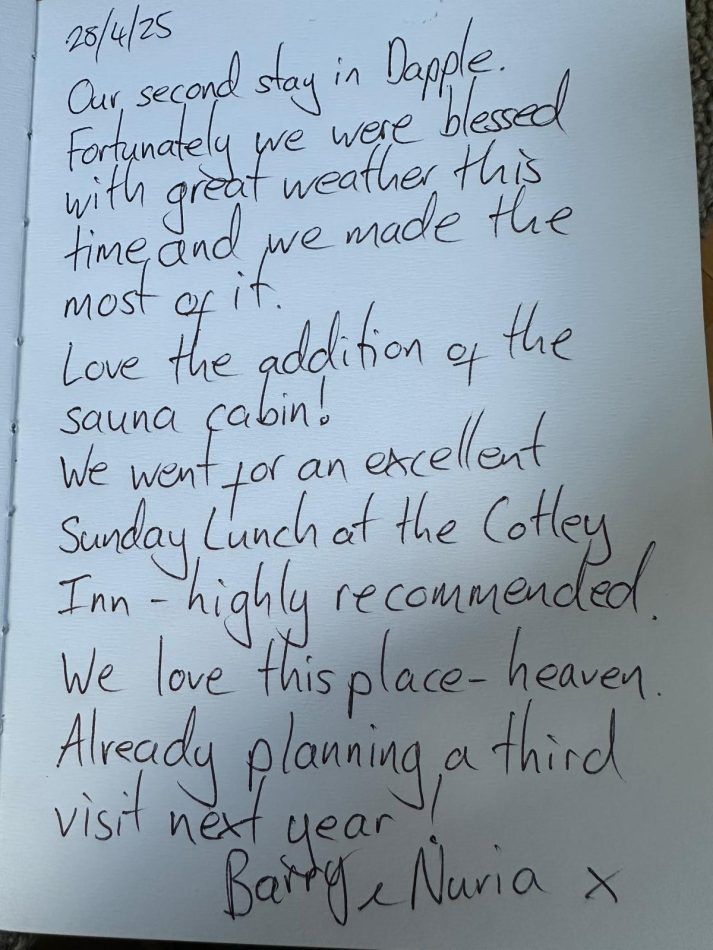 28/4/25
Our second stay in Dapple.
Fortunately we were blessed
with great weather this
time and we made the
most of it.
Love the addition of the
sauna cabin!
We went for an excellent
Sunday Lunch at the Cotley
Inn - highly recommended.
We love this place - heaven.
Already planning a third
visit next year!
Barry e Nuria x